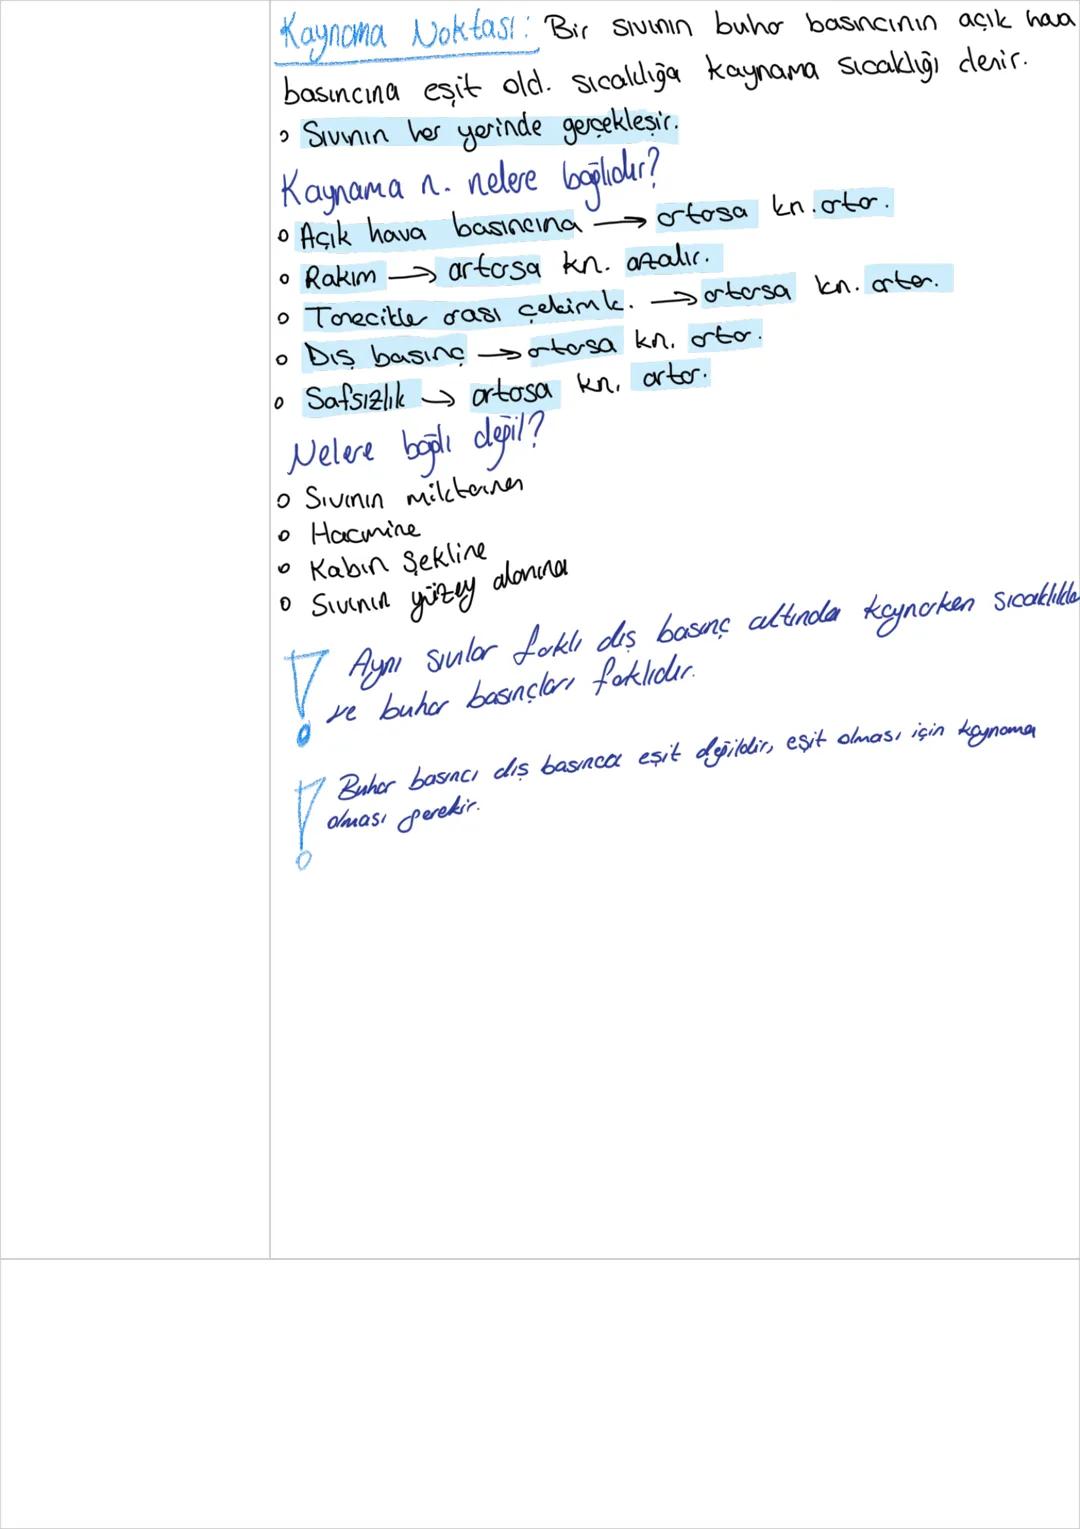 Kaynama Noktası: Bir sıvının buhar basıncının açık hava
basıncına eşit old. sıcaklığa kaynama sıcaklığı denir.
Sıvının her yerinde gerçekleşir.
Kaynama n. nelere bağlıdır?
Açık hava basıncına → artarsa kn. artar.
Rakım → artarsa kn. azalır.
Tanecikler arası çekim k. → artarsa kn. artar.
Dış basınç → artarsa kn. artar.
Safsızlık → artarsa kn. artar.
Nelere bağlı değil?
Sıvının miktarına
Hacmine
Kabın Şekline
Sıvının yüzey alanına
! Aynı sıvılar faklı dış basınç altında kaynarken sıcaklıkla
ve buhar basınçları faklıdır.
! Buhar basıncı dış basınca eşit değildir, eşit olması için kaynama
olması gerekir.